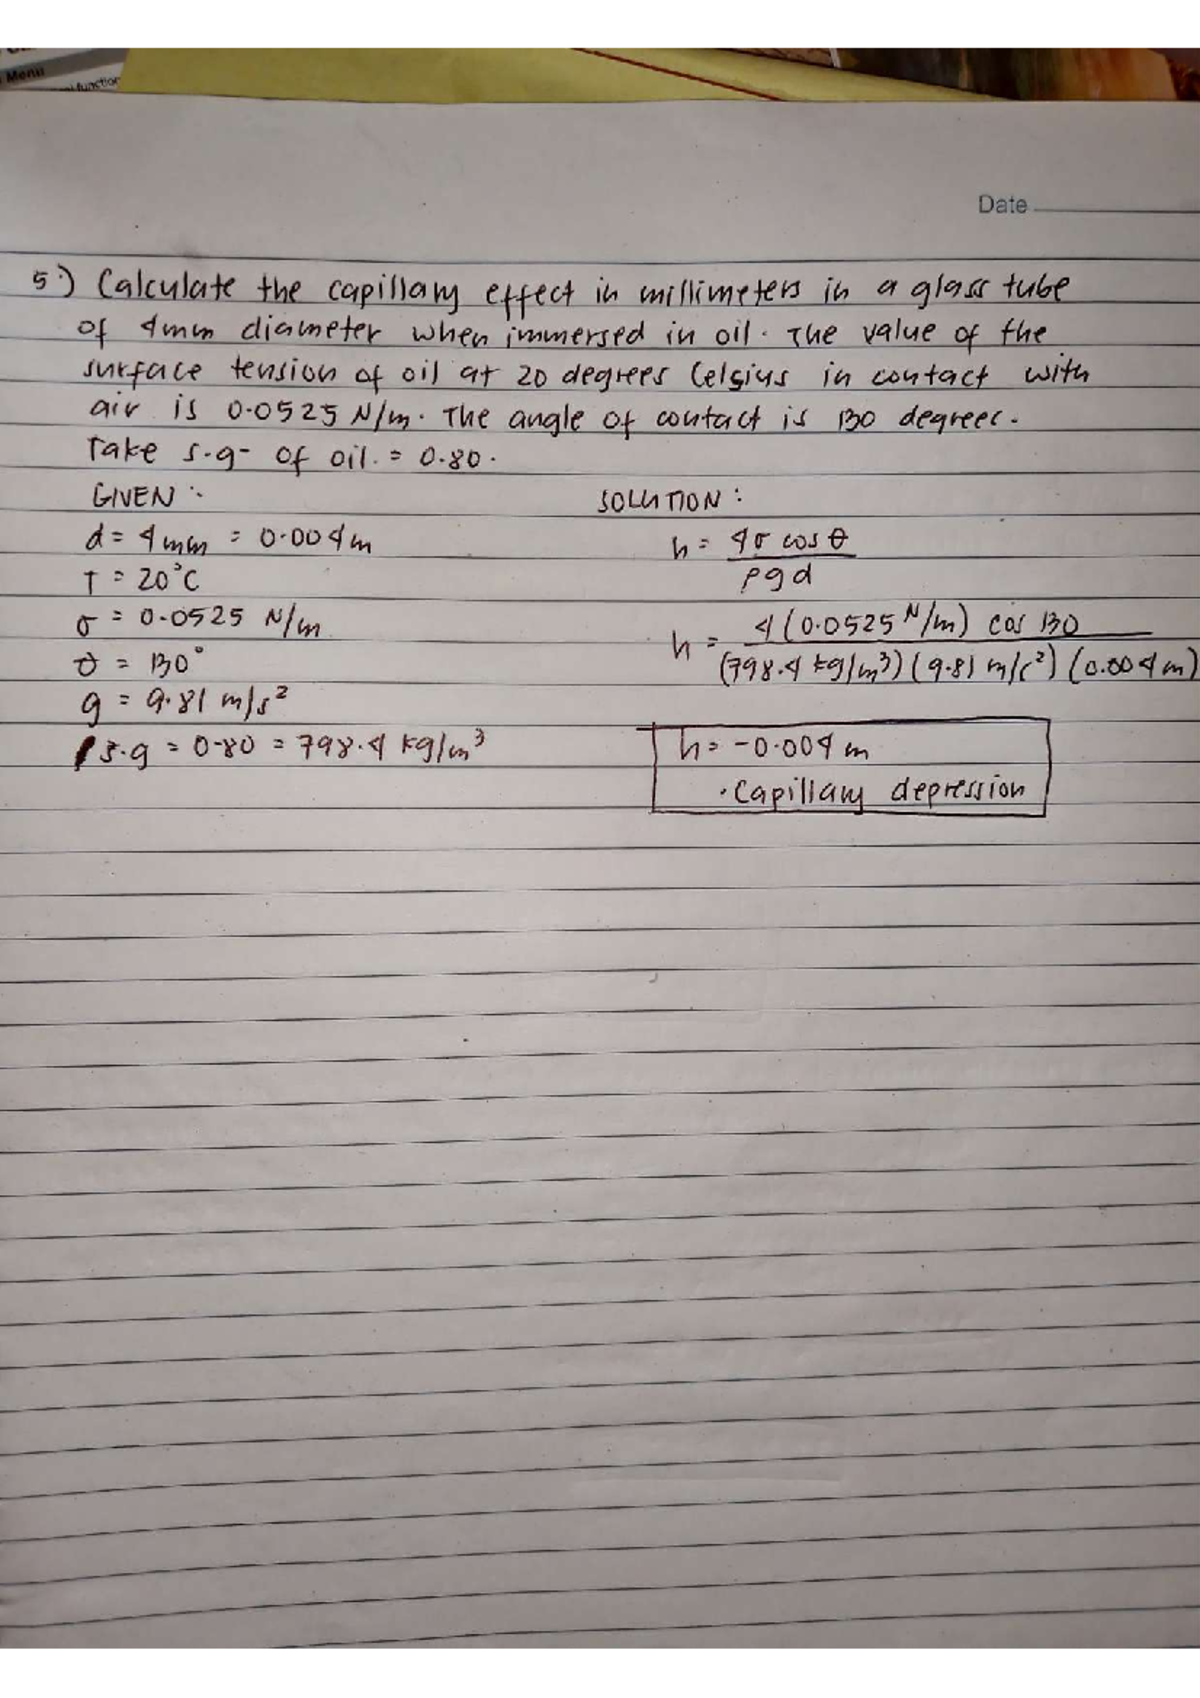 Menu
function
Date
5.) Calculate the capillary effect in millimeters in a glass tube
of 4mm diameter when immersed in oil. The value of the
surface tension of oil at 20 degrees Celsius in contact with
air is 0.0525 N/m. The angle of contact is 130 degrees.
Take s.g- of oil. = 0.80.
GIVEN :
SOLUTION :
d = 4mm = 0.004m
h = 4σ cos θ
ρgd
T = 20°C
σ = 0.0525 N/m
h = 4(0.0525 N/m) cos 130
(798.4 kg/m³)(9.81 m/s²)(0.004m)
θ = 130°
g = 9.81 m/s²
s.g = 0.80 = 798.4 kg/m³
h = -0.004 m
• Capillary depression